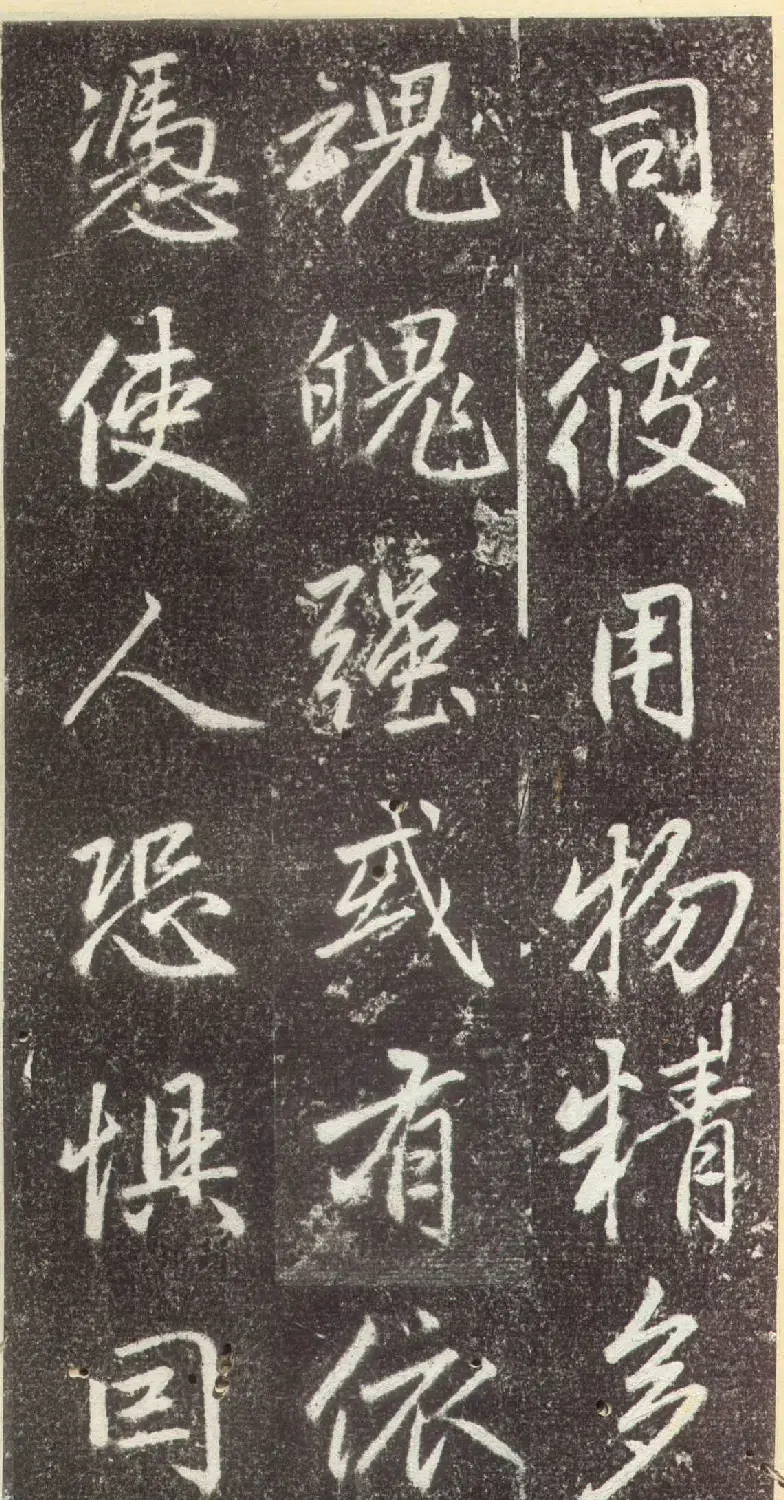 同彼用物精多
魂魄强或有依
憑使人恐懼因